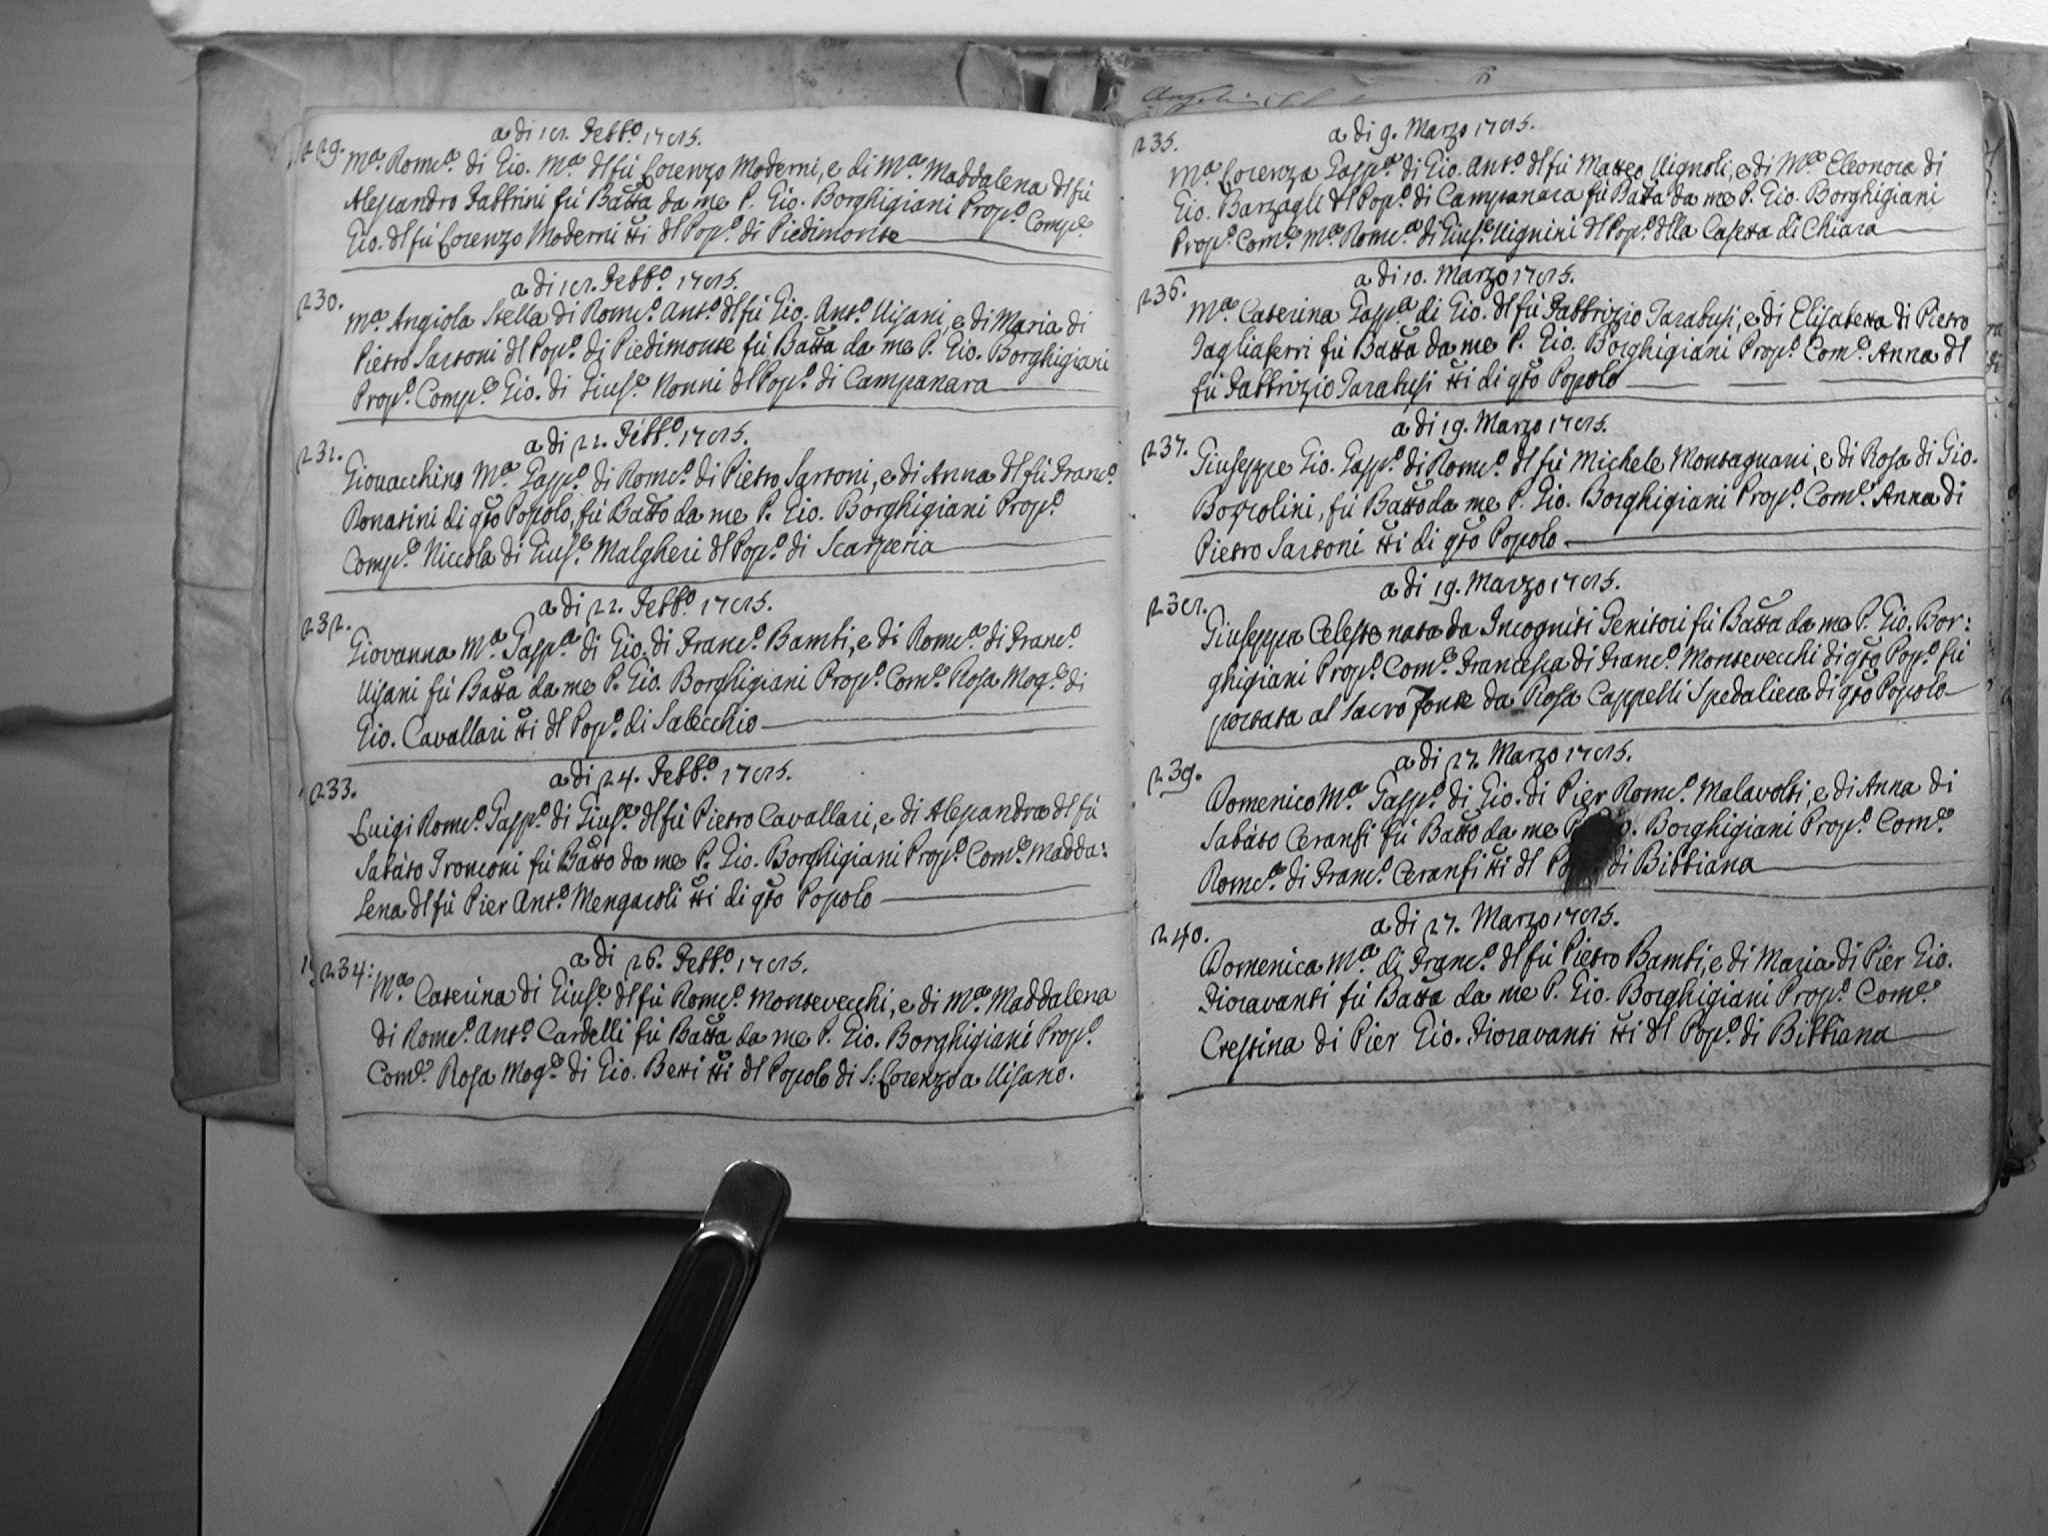 a di 18. Febb.º 1785.
229. M.ª Dom.ª di Gio. M.ª dl fù Lorenzo Moderni, e di M.ª Maddalena dl fù
Alessandro Fabbrini fù Batta da me P. Gio. Borghigiani Prop.º Comp.e
Gio. dl fù Lorenzo Moderni tti dl Pop.º di Piedimonte
a di 18. Febb.º 1785.
230. M.ª Angiola Stella di Dom.º Ant.º dl fù Gio. Ant.º Visani, e di Maria di
Pietro Sartoni dl Pop.º di Piedimonte fù Batta da me P. Gio. Borghigiani
Prop.º Comp.e Gio. di Gius.e Nonni dl Pop.º di Campanara
a di 22. Febb.º 1785.
231. Giovacchino M.ª Gasp.º di Dom.º di Pietro Sartoni, e di Anna dl fù Franc.º
Donatini di qto Popolo, fù Batto da me P. Gio. Borghigiani Prop.º
Comp.e Niccola di Gius.e Malgheri dl Pop.º di Scarperia
a di 22. Febb.º 1785.
232. Giovanna M.ª Gasp.ª di Gio. di Franc.º Bambi, e di Dom.ª di Franc.º
Visani fù Batta da me P. Gio. Borghigiani Prop.º Com.e Rosa Mog.e di
Gio. Cavallari tti dl Pop.º di Salecchio
a di 24. Febb.º 1785.
233. Luigi Dom.º Gasp.º di Gius.e dl fù Pietro Cavallari, e di Alessandra dl fù
Sabáto Tronconi fù Batto da me P. Gio. Borghigiani Prop.º Com.e Madda:
lena dl fù Pier Ant.º Mengacoli tti di qto Popolo
a di 26. Febb.º 1785.
234: M.ª Caterina di Gius.e dl fù Dom.º Montevecchi, e di M.ª Maddalena
di Dom.º Ant.º Cardelli fù Batta da me P. Gio. Borghigiani Prop.º
Com.e Rosa Mog.e di Gio. Betti tti dl Popolo di S: Lorenzo a Visano.
a di 9. Marzo 1785.
235. M.ª Lorenza Gasp.ª di Gio. Ant.º dl fù Matteo Vignoli, e di M.ª Eleonora di
Gio. Barzagli dl Pop.º di Campanara fù Batta da me P. Gio. Borghigiani
Prop.º Com.e M.ª Dom.ª di Gius.e Vignini dl Pop.º dlla Casetta di Chiara
a di 10. Marzo 1785.
236. M.ª Caterina Gasp.ª di Gio. dl fù Fabbrizio Tarabusi, e di Elisabetta di Pietro
Tagliaferri fù Batta da me P. Gio. Borghigiani Prop.º Com.e Anna dl
fù Fabbrizio Tarabusi tti di qto Popolo
a di 19. Marzo 1785.
237. Giuseppe Gio. Gasp.º di Dom.º dl fù Michele Montagnani, e di Rosa di Gio.
Bozzolini, fù Batto da me P. Gio. Borghigiani Prop.º Com.e Anna di
Pietro Sartoni tti di qto Popolo
a di 19. Marzo 1785.
238. Giuseppa Celeste nata da Incogniti Genitori fù Batta da me P. Gio. Bor:
ghigiani Prop.º Com.e Francesca di Franc.º Montevecchi di qto Pop.º fù
portata al Sacro Fonte da Rosa Cappelli Spedaliera di qto Popolo
a di 27. Marzo 1785.
239. Domenico M.ª Gasp.º di Gio. di Pier Dom.º Malavolti, e di Anna di
Sabáto Ceranfi fù Batto da me P. Borghigiani Prop.º Com.e
Dom.º di Franc.º Ceranfi tti dl di Bibbiana
a di 27. Marzo 1785.
240. Domenica M.ª di Franc.º dl fù Pietro Bambi, e di Maria di Pier Gio.
Fioravanti fù Batta da me P. Gio. Borghigiani Prop.º Com.e
Crestina di Pier Gio. Fioravanti tti dl Pop.º di Bibbiana